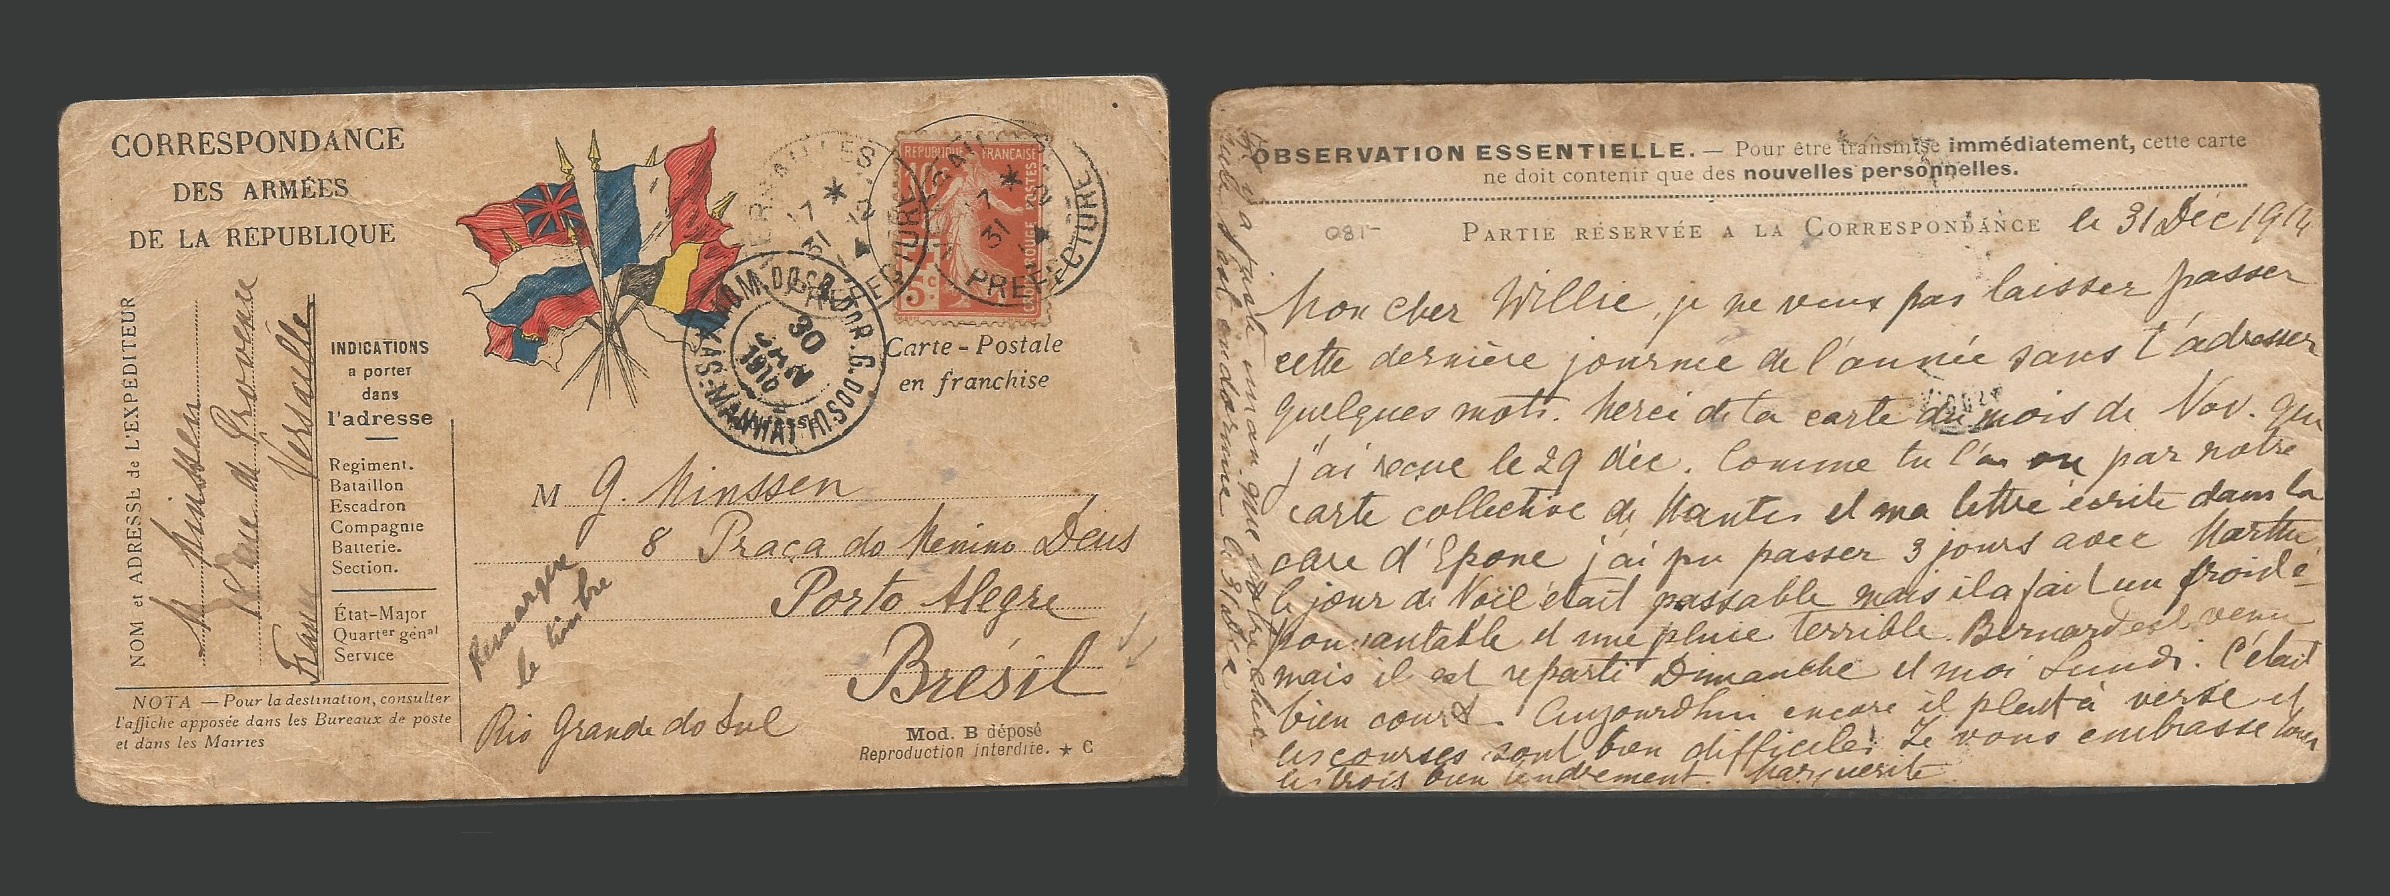 CORRESPONDANCE
DES ARMÉES
DE LA RÉPUBLIQUE
NOM et ADRESSE de L'EXPÉDITEUR
M Minssen
Rue de Provence
Versaille
France
INDICATIONS
a porter
dans
l'adresse
Regiment.
Bataillon
Escadron
Compagnie
Batterie.
Section.
État-Major
Quartier génal
Service
NOTA — Pour la destination, consulter
l'affiche apposée dans les Bureaux de poste
et dans les Mairies
VERSAILLES
17 *
31 12
PREFECTURE
VERSAILLES
17 *
31 12
PREFECTURE
REPUBLIQUE FRANÇAISE
POSTES
CROIX ROUGE
10
+
5c
30
JAN
1915
Carte - Postale
en franchise
M G. Minssen
8 Praça do Menino Deus
Porto Alegre
Brésil
Rio Grande do Sul
Remarquer
le timbre
Mod. B déposé
Reproduction interdite. ★ C
OBSERVATION ESSENTIELLE. — Pour être transmise immédiatement, cette carte
ne doit contenir que des nouvelles personnelles.
PARTIE RÉSERVÉE A LA CORRESPONDANCE le 31 Déc 1914
Mon cher Willie, je ne veux pas laisser passer
cette dernière journée de l'année sans t'adresser
quelques mots. Merci de ta carte du mois de Nov. que
j'ai reçue le 29 déc. Comme tu l'as vu par notre
carte collective de Mantes et ma lettre écrite dans la
gare d'Epone j'ai pu passer 3 jours avec Marthe
le jour de Noël était passable mais il a fait un froid é-
pouvantable et une pluie terrible. Bernard est venu
mais il est reparti Dimanche et moi Lundi. C'était
bien court. Aujourdhui encore il pleut à verse et
les courses sont bien difficiles. Je vous embrasse tous
les trois bien tendrement. Marguerite
Il y a juste un an que votre chère